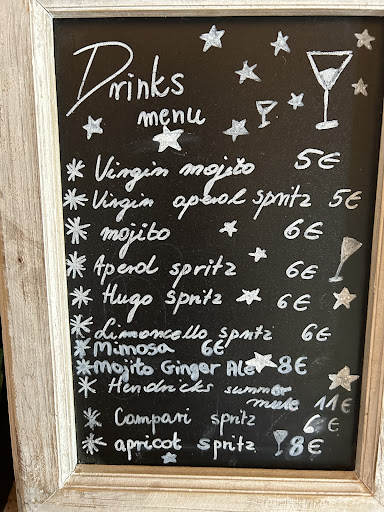 Drinks
menu
* Virgin mojito 5€
* Virgin aperol spritz 5€
* mojito 6€
* Aperol spritz 6€
* Hugo spritz 6€
* Limoncello spritz 6€
* Mimosa 6€
* Mojito Ginger Ale 8€
* Hendricks summer
mule 11€
* Campari spritz 6€
* apricot spritz 8€